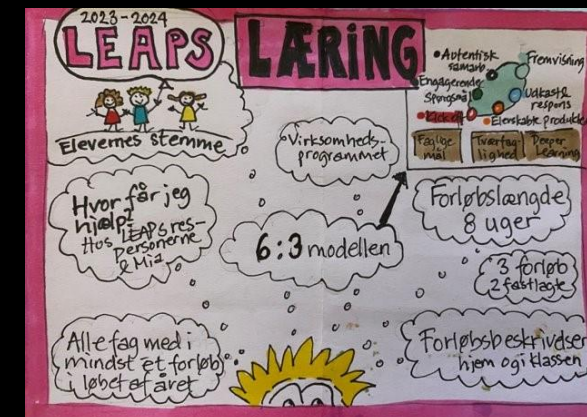 2023-2024
LEAPS
LÆRING
Elevernes stemme
• Autentisk
samarb
Fremvisning
• Engagerende
Spørgsmål
Udkast &
respons
• Kick off
• Elenskabte produkter
Faglige
mål
Tværfag-
lighed
Deeper
Learning
Virksomheds-
programmet
Hvor får jeg
hjælp?
Hos LEAPS res-
Personerne
& Mia
6:3 modellen
Forløbslængde
8 uger
3 forløb
2 fastlagte
Alle fag med i
mindst ét forløb
i løbet af året
Forløbsbeskrivelser
hjem og i klassen